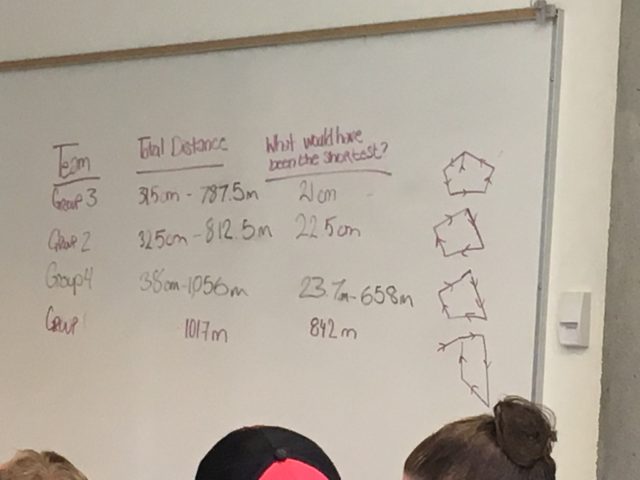 Team Total Distance What would have
been the shortest?
Group 3 31.5cm - 787.5m 21cm
Group 2 32.5cm - 812.5m 22.5cm
Group 4 38cm-1,056m 23.7m-658m
Group 1 1017m 842m